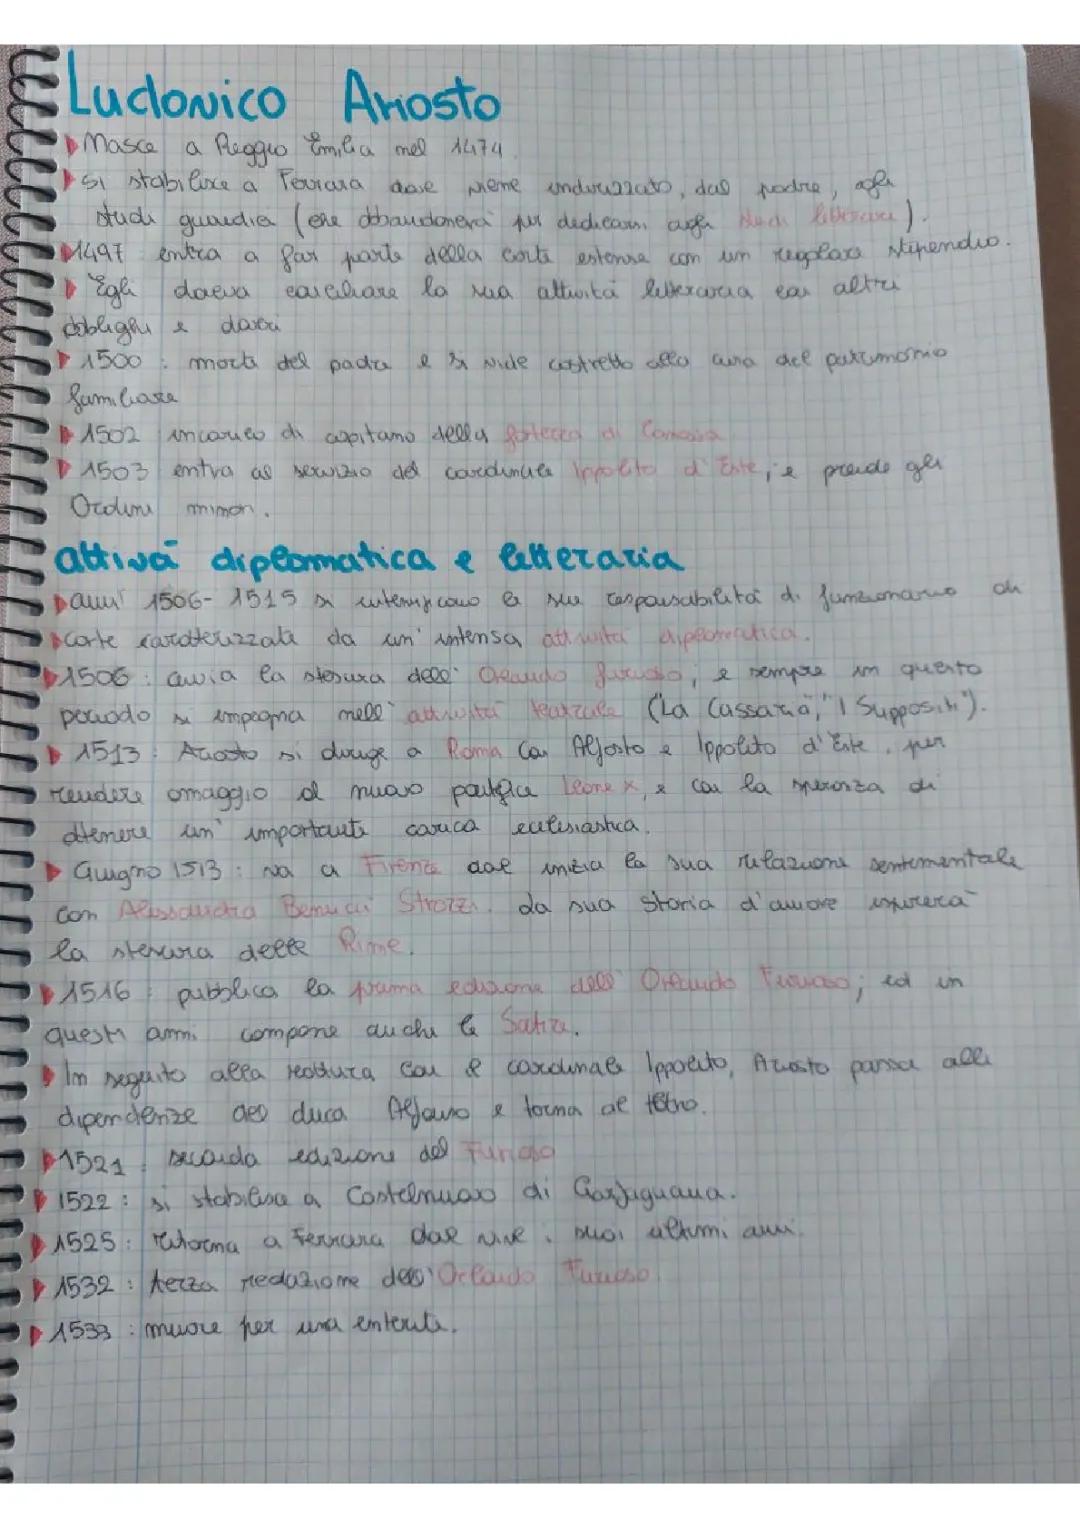 Ludovico Ariosto
Nasce a Reggio Emilia nel 1474
si stabilisce a Ferrara dove viene indirizzato, dal padre, agli
studi giuridici (che abbandonerà per dedicarsi agli studi letterari).
1497 entra a far parte della corte estense con un regolare stipendio.
Egli doveva conciliare la sua attività letteraria con altri
obblighi e doveri
1500: morte del padre e si vide costretto alla cura del patrimonio
familiare
1502 incarico di capitano della fortezza di Canossa
1503 entra al servizio del cardinale Ippolito d'Este, e prende gli
Ordini minori.
attività diplomatica e letteraria
anni 1506-1515 si intensificano le sue responsabilità di funzionario di
corte caratterizzata da un'intensa attività diplomatica.
1506: avvia la stesura dell'Orlando furioso, e sempre in questo
periodo si impegna nell'attività teatrale (La Cassaria, "I Suppositi").
1513: Ariosto si dirige a Roma con Alfonso e Ippolito d'Este, per
rendere omaggio al nuovo pontefice Leone X, e con la speranza di
ottenere un'importante carica ecclesiastica.
Giugno 1513: va a Firenze dove inizia la sua relazione sentimentale
con Alessandra Benucci Strozzi. da sua storia d'amore ispirerà
la stesura delle Rime.
1516: pubblica la prima edizione dell'Orlando Furioso; ed in
questi anni compone anche le Satire.
In seguito alla rottura con il cardinale Ippolito, Ariosto passa alle
dipendenze del duca Alfonso e torna al teatro.
1521: seconda edizione del Furioso
1522: si stabilisce a Castelnuovo di Garfagnana.
1525: ritorna a Ferrara dove vive i suoi ultimi anni.
1532: terza redazione dell'Orlando Furioso
1533: muore per una enterite.